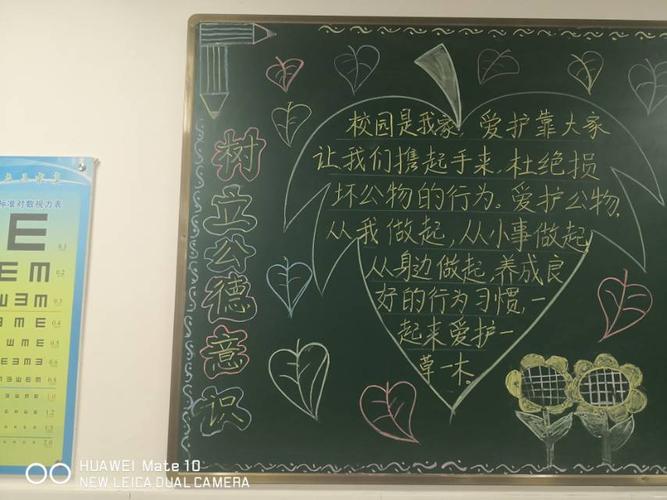 树立公德意识
校园是我家，爱护靠大家
让我们携起手来，杜绝损
坏公物的行为。爱护公物，
从我做起，从小事做起，
从身边做起，养成良
好的行为习惯，一
起来爱护一
草一木。
标准对数视力表
E
0.1
0.2
0.3
0.4
HUAWEI Mate 10
NEW LEICA DUAL CAMERA